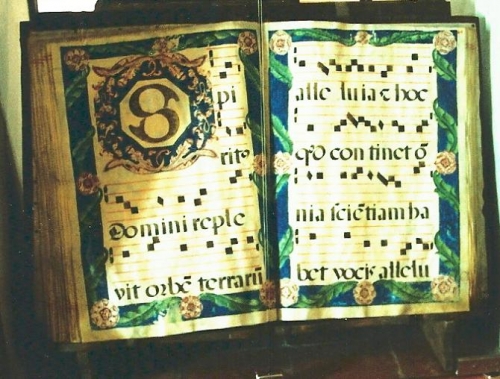 S pi
rits
Domini reple
vit orbē terrarū
alle luia & hoc
qƺ continet ō
nia sciētiam ha
bet vocis allelu